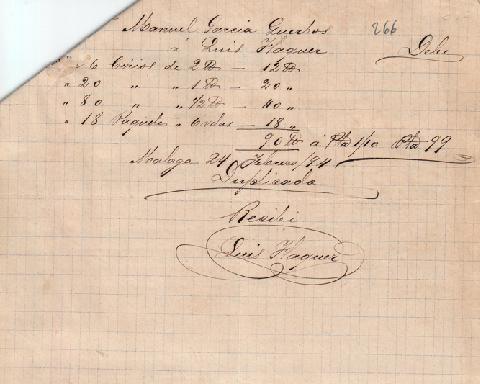 Manuel Garcia 266
á Luis Haguer Debe
6 Cirios de 2 ℔ — 12 ℔
" 20 " " 1 ℔ — 20 "
" 80 " " 1/2 ℔ — 40 "
" 18 Paquetes " — 18 "
90 ℔ á Pta 1,10 Pta 99
Malaga 24 Febrero /94
Duplicado
Recibi
Luis Haguer